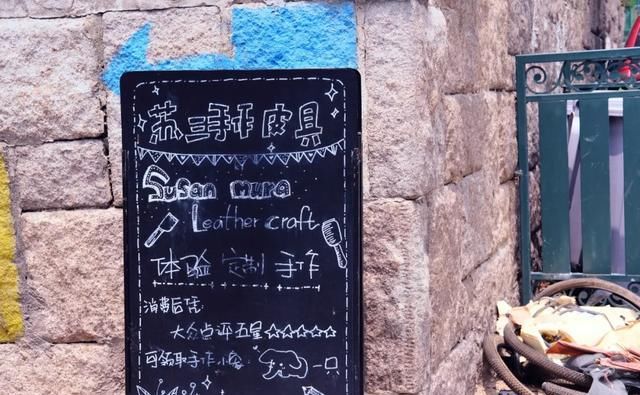 苏三手作皮具
Susan mura
Leather craft
体验 定制 手作
消费后凭
大众点评五星☆☆☆☆☆
可领取手作小象 一只